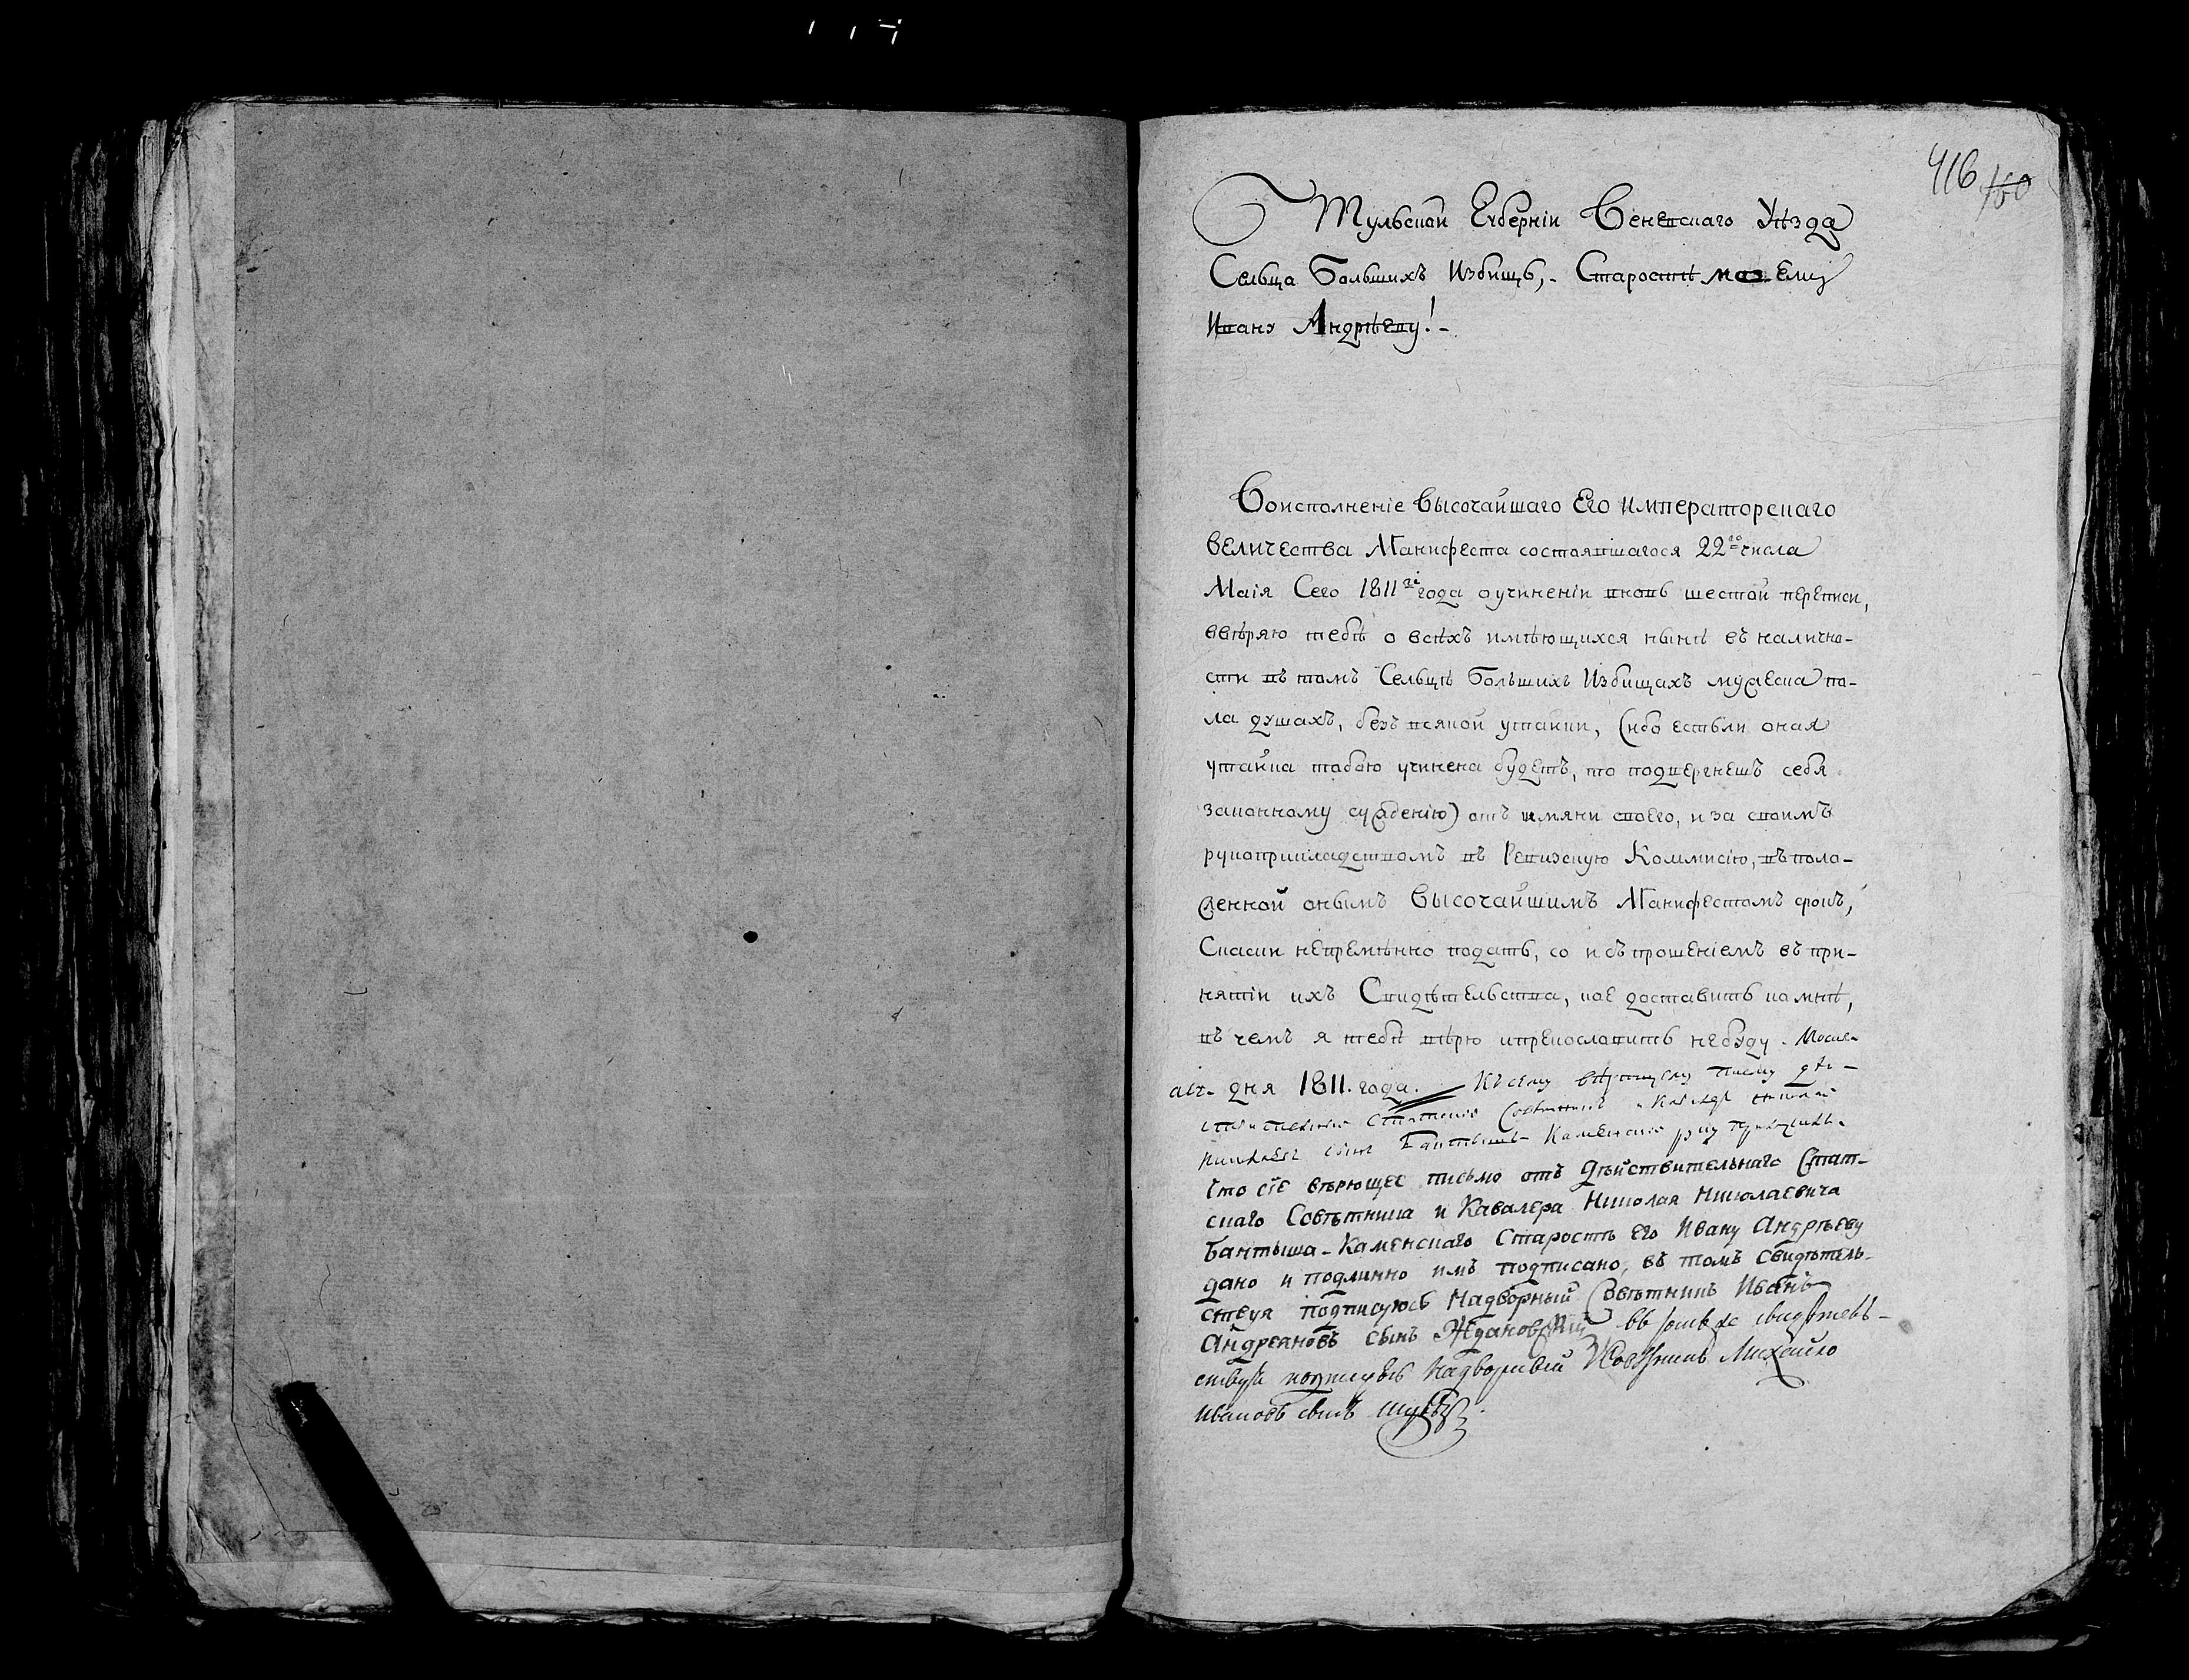 416 160
Тульской Губерніи Веневскаго Уѣзда
Сельца Большихъ Избищъ, - Старостѣ моему
Ивану Андрѣеву! -
Воисполненіе Высочайшаго Его Императорскаго
Величества Манифеста состоявшагося 22го числа
Маія Сего 1811го года о учиненіи вновь шестой переписи,
ввѣряю тебѣ о всѣхъ имѣющихся нынѣ въ налично-
сти въ томъ Сельцѣ Большихъ Избищахъ мужеска по-
ла душахъ, безъ всякой утайки, (ибо естьли оная
утайка тобою учинена будетъ, то подвергнешъ себя
законному сужденію) отъ имяни своего, и за своимъ
рукоприкладствомъ въ Ревизскую Коммисію, въ поло-
женной онымъ Высочайшимъ Манифестомъ срокъ,
Скаски непремѣнно подать, со и съ прошеніемъ въ при-
нятіи ихъ Свидѣтельства, кое доставить ко мнѣ,
въ чемъ я тебѣ вѣрю и прекословить небуду.
дня 1811. года. Къ сему вѣрющему писму дѣ-
ствительной статской Совѣтникъ и Кавалеръ Николай
Николаевъ сынъ Бантышъ-Каменской руку приложилъ.
Что сіе вѣрющее письмо отъ Дѣйствительнаго Стат-
скаго Совѣтника и Кавалера Николая Николаевича
Бантыша-Каменскаго Старостѣ Его Ивану Андрѣеву
дано и подлинно имъ подписано, въ томъ свидѣтель-
ствуя подписуюсь Надворный Совѣтникъ Иванъ
Андреяновъ сынъ Ждановскій въ томъ же свидѣтель-
ствуя подписуюсь Надворный Совѣтникъ Михайло
Ивановъ сынъ